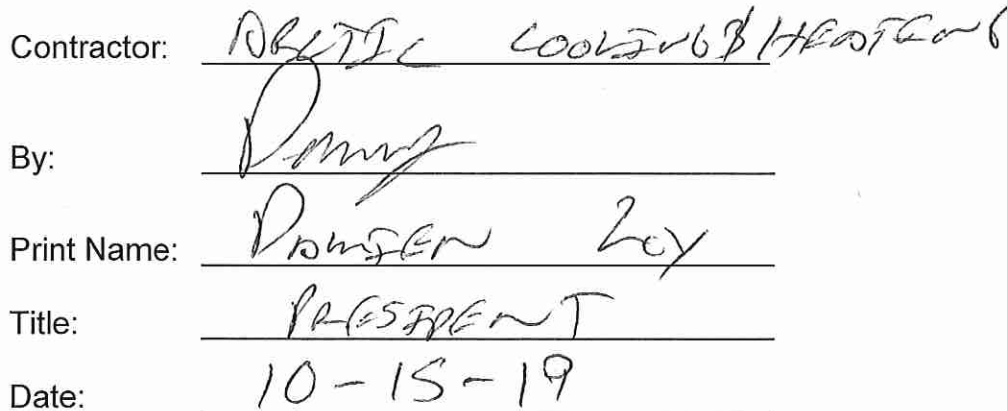 Contractor: ARCTIC COOLING & HEATING
By:
Print Name: DAMIEN LOY
Title: PRESIDENT
Date: 10-15-19